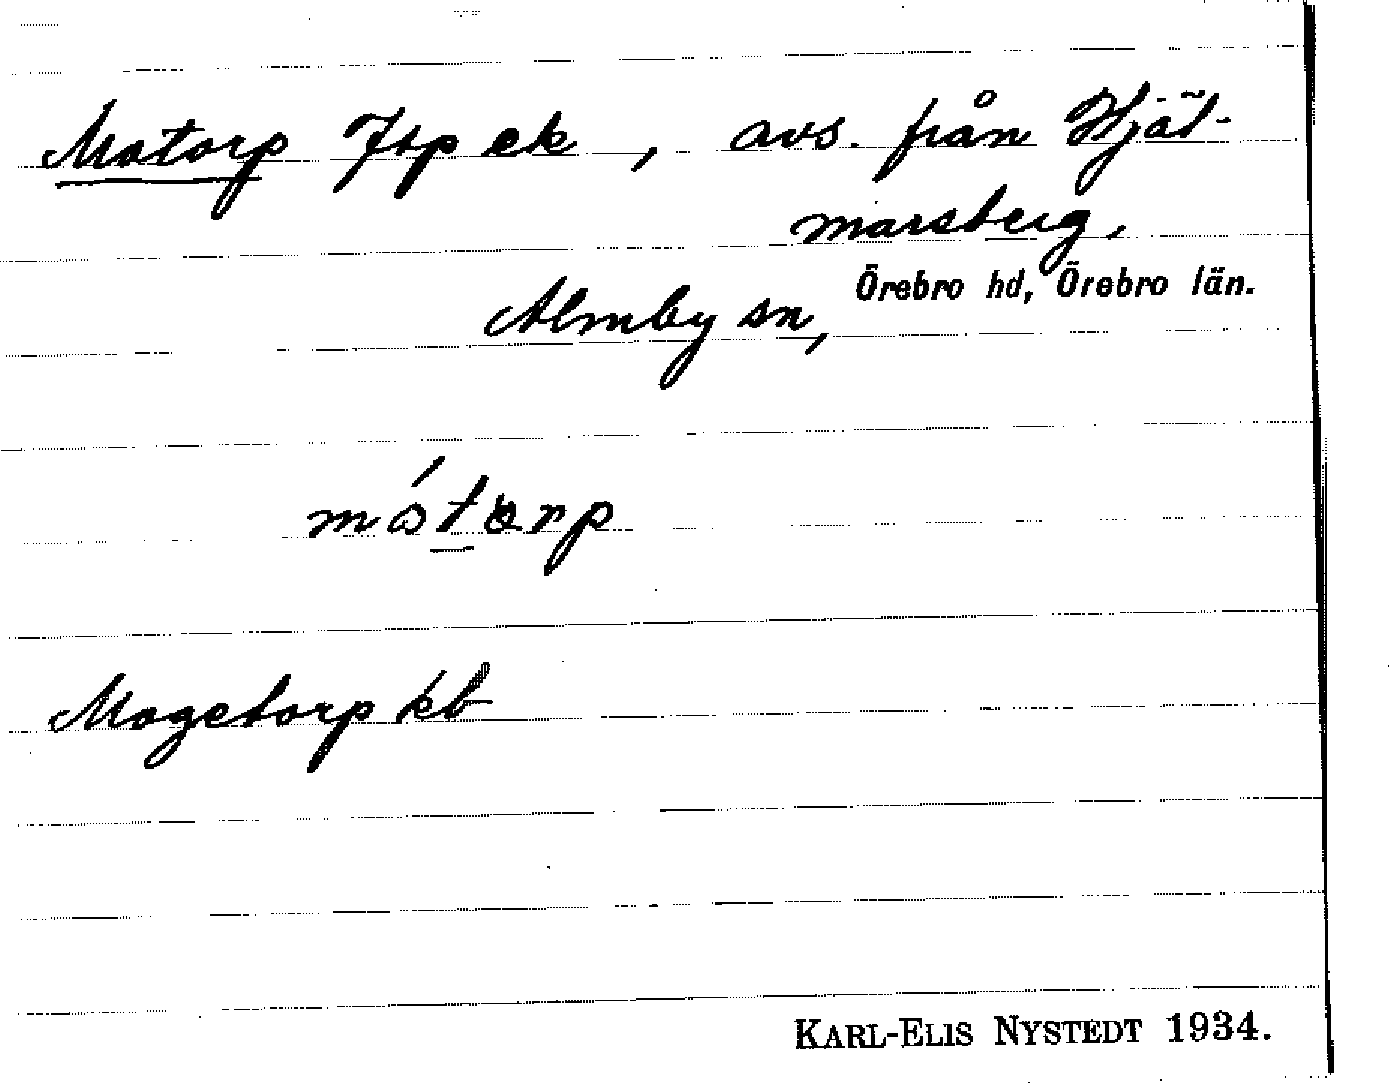 Motorp Jtp ek, avs. från Hjäl-
marsberg,
Almby sn, Örebro hd, Örebro län.
mótorp
Mogetorp kb
KARL-ELIS NYSTEDT 1934.